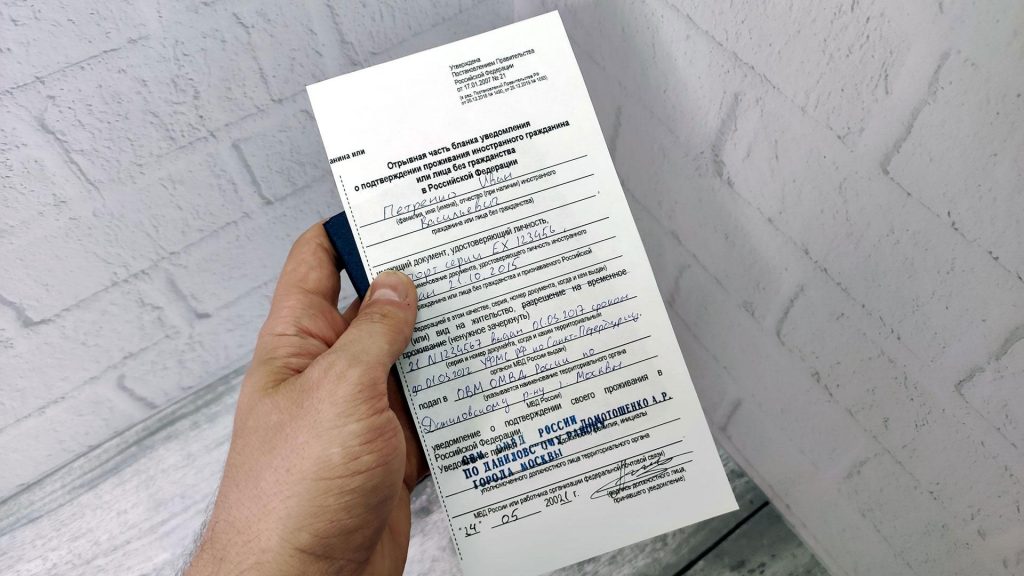 Утверждена
Постановлением Правительства
Российской Федерации
от 17.01.2007 № 21
(в ред. Постановлений Правительства РФ
анина или
Отрывная часть бланка уведомления
о подтверждении проживания иностранного гражданина
или лица без гражданства
в Российской Федерации
Петренко Иван
(фамилия, имя (имена), отчество (при наличии) иностранного
Васильевич
гражданина или лица без гражданства)
ющий документ, удостоверяющий личность,
порт серии ЕХ 123456,
именование документа, удостоверяющего личность иностранного
ан 21.10.2015
ажданина или лица без гражданства и признаваемого Российской
Федерацией в этом качестве, серия, номер документа, когда и кем выдан)
(или) вид на жительство, разрешение на временное
проживание (ненужное зачеркнуть)
выдан 01.03.2017 сроком
(серия и номер документа, когда и каким территориальным
до 01.03.2022 УФМС РФ по Санкт-Петербургу.
органом МВД России выдан)
подал в ОВМ ОМВД России по
(указывается наименование территориального органа
Даниловскому р-ну г. Москвы
МВД России)
уведомление о подтверждении своего проживания в
Российской Федерации.
Уведомление принял
ОВМ ОМВД РОССИИ ДОМОТОШЕНКО А.Р.
фамилия, инициалы
ПО ДАНИЛОВСКОМУ РАЙОНУ
уполномоченного должностного лица территориального органа
ГОРОДА МОСКВЫ
МВД России или работника организации федеральной почтовой связи)
"24" 05 г.
(подпись должностного лица,
принявшего уведомление)